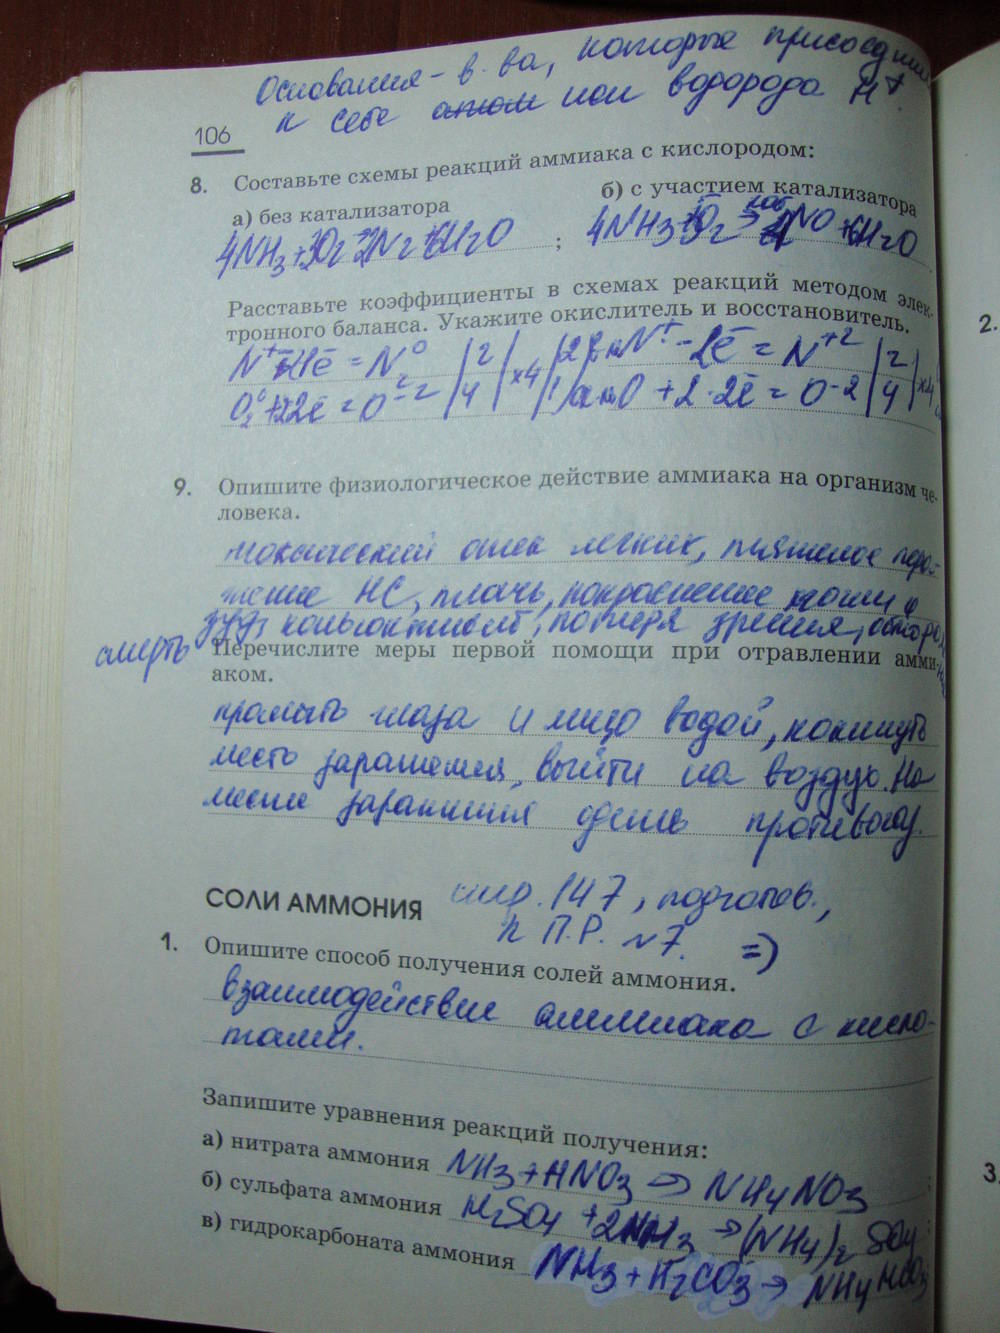 Основания - в-ва, которые присоедин
к себе атом ион водорода H⁺.
106
8. Составьте схемы реакций аммиака с кислородом:
а) без катализатора
б) с участием катализатора
4NH₃ + 3O₂ → 2N₂ + 6H₂O ;
4NH₃ + 5O₂ → 4NO + 6H₂O
Расставьте коэффициенты в схемах реакций методом элек-
тронного баланса. Укажите окислитель и восстановитель.
9. Опишите физиологическое действие аммиака на организм че-
ловека.
токсический отек легких, тяжелое пора-
жение НС, покраснение кожи и
зуд, конъюнктивит, потеря зрения,
смерть
Перечислите меры первой помощи при отравлении амми-
аком.
промыть глаза и лицо водой, покинуть
место заражения, выйти на воздух. На
заражения противогаз.
СОЛИ АММОНИЯ
стр. 147, подготов.,
к П.Р. №7. =)
1. Опишите способ получения солей аммония.
взаимодействие аммиака с кисло-
тами.
Запишите уравнения реакций получения:
а) нитрата аммония NH₃ + HNO₃ → NH₄NO₃ ;
б) сульфата аммония H₂SO₄ + 2NH₃ → (NH₄)₂SO₄ ;
в) гидрокарбоната аммония NH₃ + H₂CO₃ → NH₄HCO₃
2.
3.